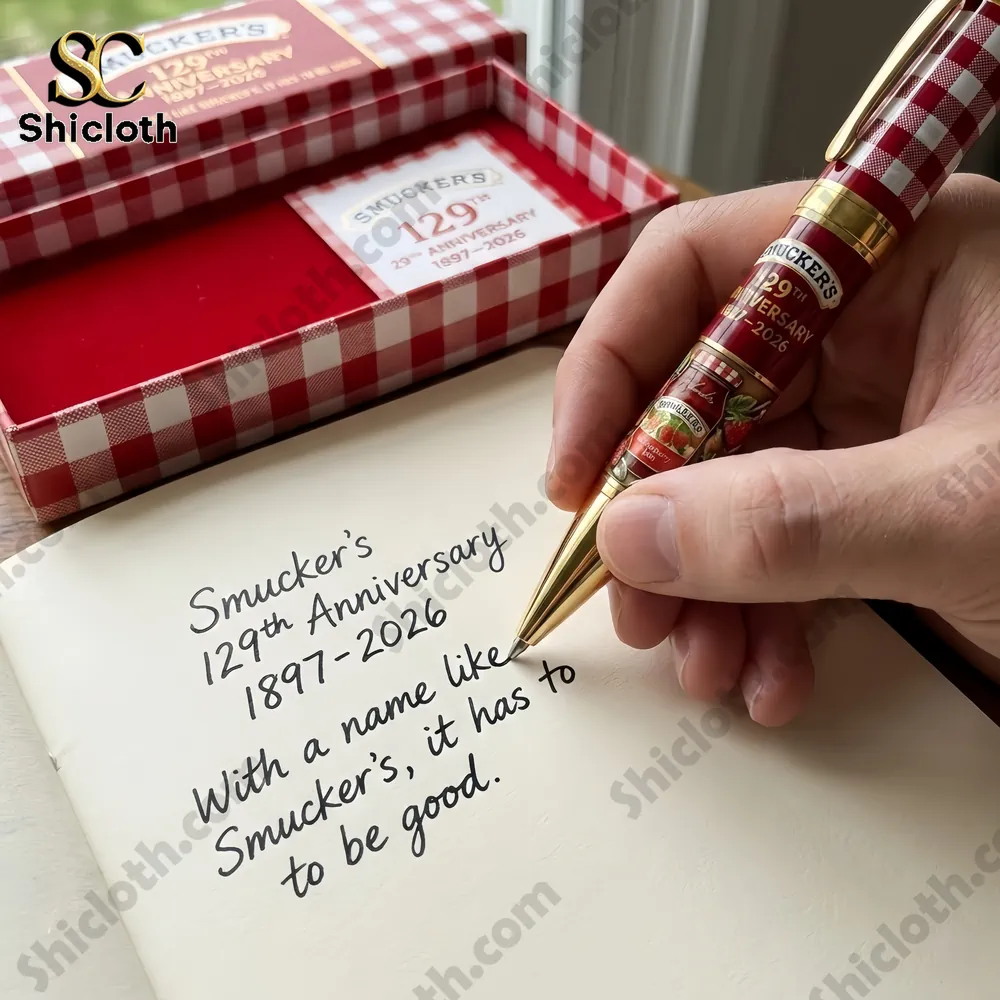 SC
Shicloth
SMUCKER'S
129TH
ANNIVERSARY
1897-2026
SMUCKER'S
129TH
29TH ANNIVERSARY
1897-2026
SMUCKER'S
129TH
ANNIVERSARY
1897-2026
Smucker's
129th Anniversary
1897-2026
With a name like
Smucker's, it has to
to be good.
Shicloth.com
Shicloth.com
Shicloth.com
Shicloth.com
Shicloth.com